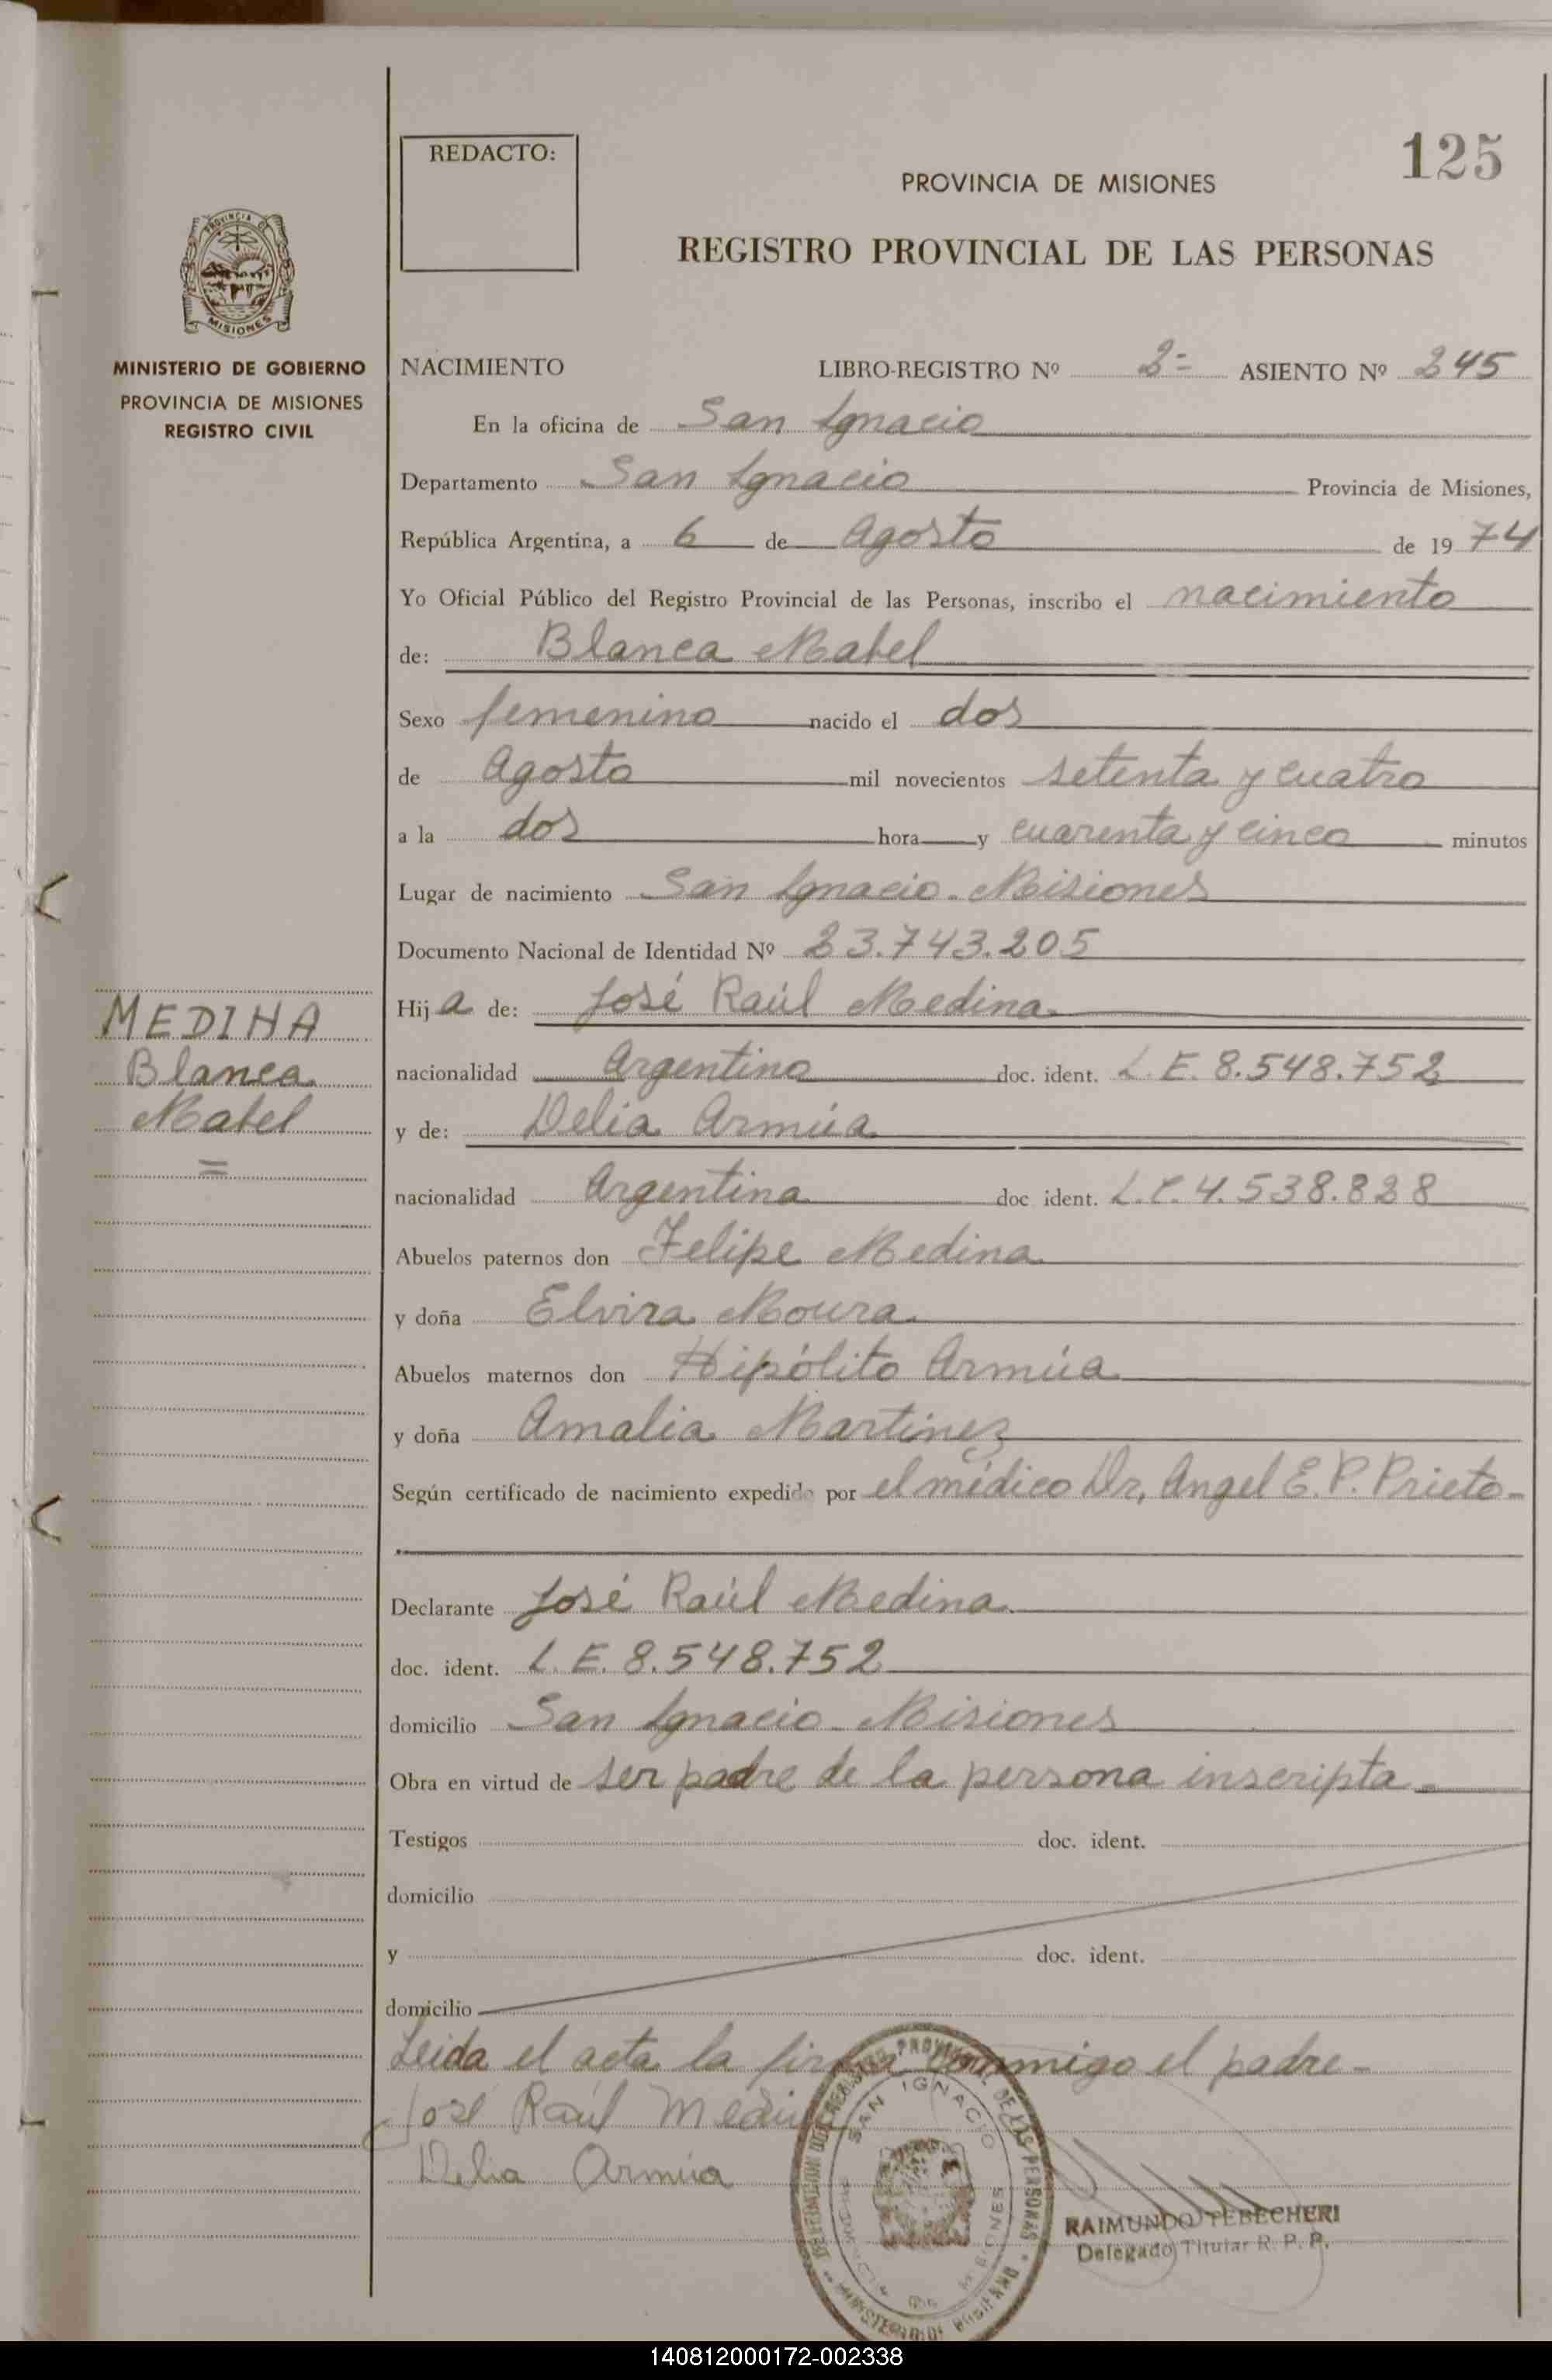 125
REDACTO:
PROVINCIA DE MISIONES
REGISTRO PROVINCIAL DE LAS PERSONAS
PROVINCIA DE
MISIONES
MINISTERIO DE GOBIERNO
PROVINCIA DE MISIONES
REGISTRO CIVIL
NACIMIENTO LIBRO-REGISTRO Nº 2= ASIENTO Nº 245
En la oficina de San Ignacio
Departamento San Ignacio Provincia de Misiones,
República Argentina, a 6 de Agosto de 19 74
Yo Oficial Público del Registro Provincial de las Personas, inscribo el nacimiento
de: Blanca Mabel
Sexo femenino nacido el dos
de Agosto mil novecientos setenta y cuatro
a la dos hora y cuarenta y cinco minutos
Lugar de nacimiento San Ignacio - Misiones
Documento Nacional de Identidad Nº 23.743.205
MEDINA
Blanca
Mabel
=
Hij a de: José Raúl Medina
nacionalidad Argentino doc. ident. L.E. 8.548.752
y de: Delia Armúa
nacionalidad Argentina doc ident. L.C. 4.538.828
Abuelos paternos don Felipe Medina
y doña Elvira Moura
Abuelos maternos don Hipólito Armúa
y doña Amalia Martinez
Según certificado de nacimiento expedido por el médico Dr, Angel E. P. Prieto-
Declarante José Raúl Medina
doc. ident. L.E. 8.548.752
domicilio San Ignacio - Misiones
Obra en virtud de ser padre de la persona inscripta -
Testigos doc. ident.
domicilio
y doc. ident.
domicilio
Leida el acta la firma conmigo el padre -
José Raúl Medina
Delia Armúa
SAN IGNACIO
MISIONES
RAIMUNDO TEBECHERI
Delegado Titular R. P. P.
140812000172-002338